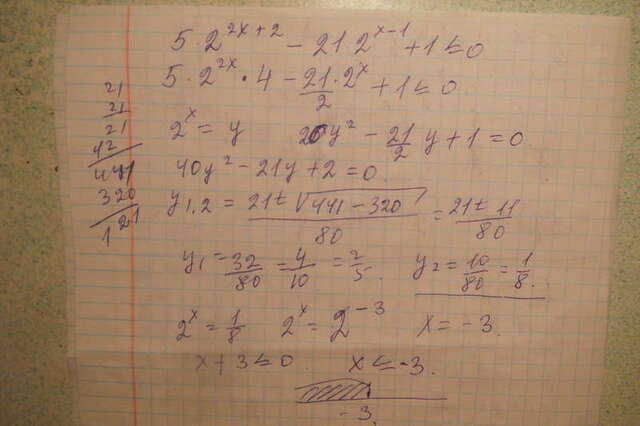 5·2^{2x+2} - 21·2^{x-1} + 1 ≤ 0
5·2^{2x}·4 - \frac{21}{2}·2^x + 1 ≤ 0
2^x = y    20y^2 - \frac{21}{2}y + 1 = 0
40y^2 - 21y + 2 = 0.
y_{1,2} = \frac{21 ± \sqrt{441 - 320}}{80} = \frac{21 ± 11}{80}
y_1 = \frac{32}{80} = \frac{4}{10} = \frac{2}{5}.    y_2 = \frac{10}{80} = \frac{1}{8}.
2^x = \frac{1}{8}    2^x = 2^{-3}    x = -3.
x + 3 ≤ 0.    x ≤ -3.
-3.
21
21
21
42
441
320
121